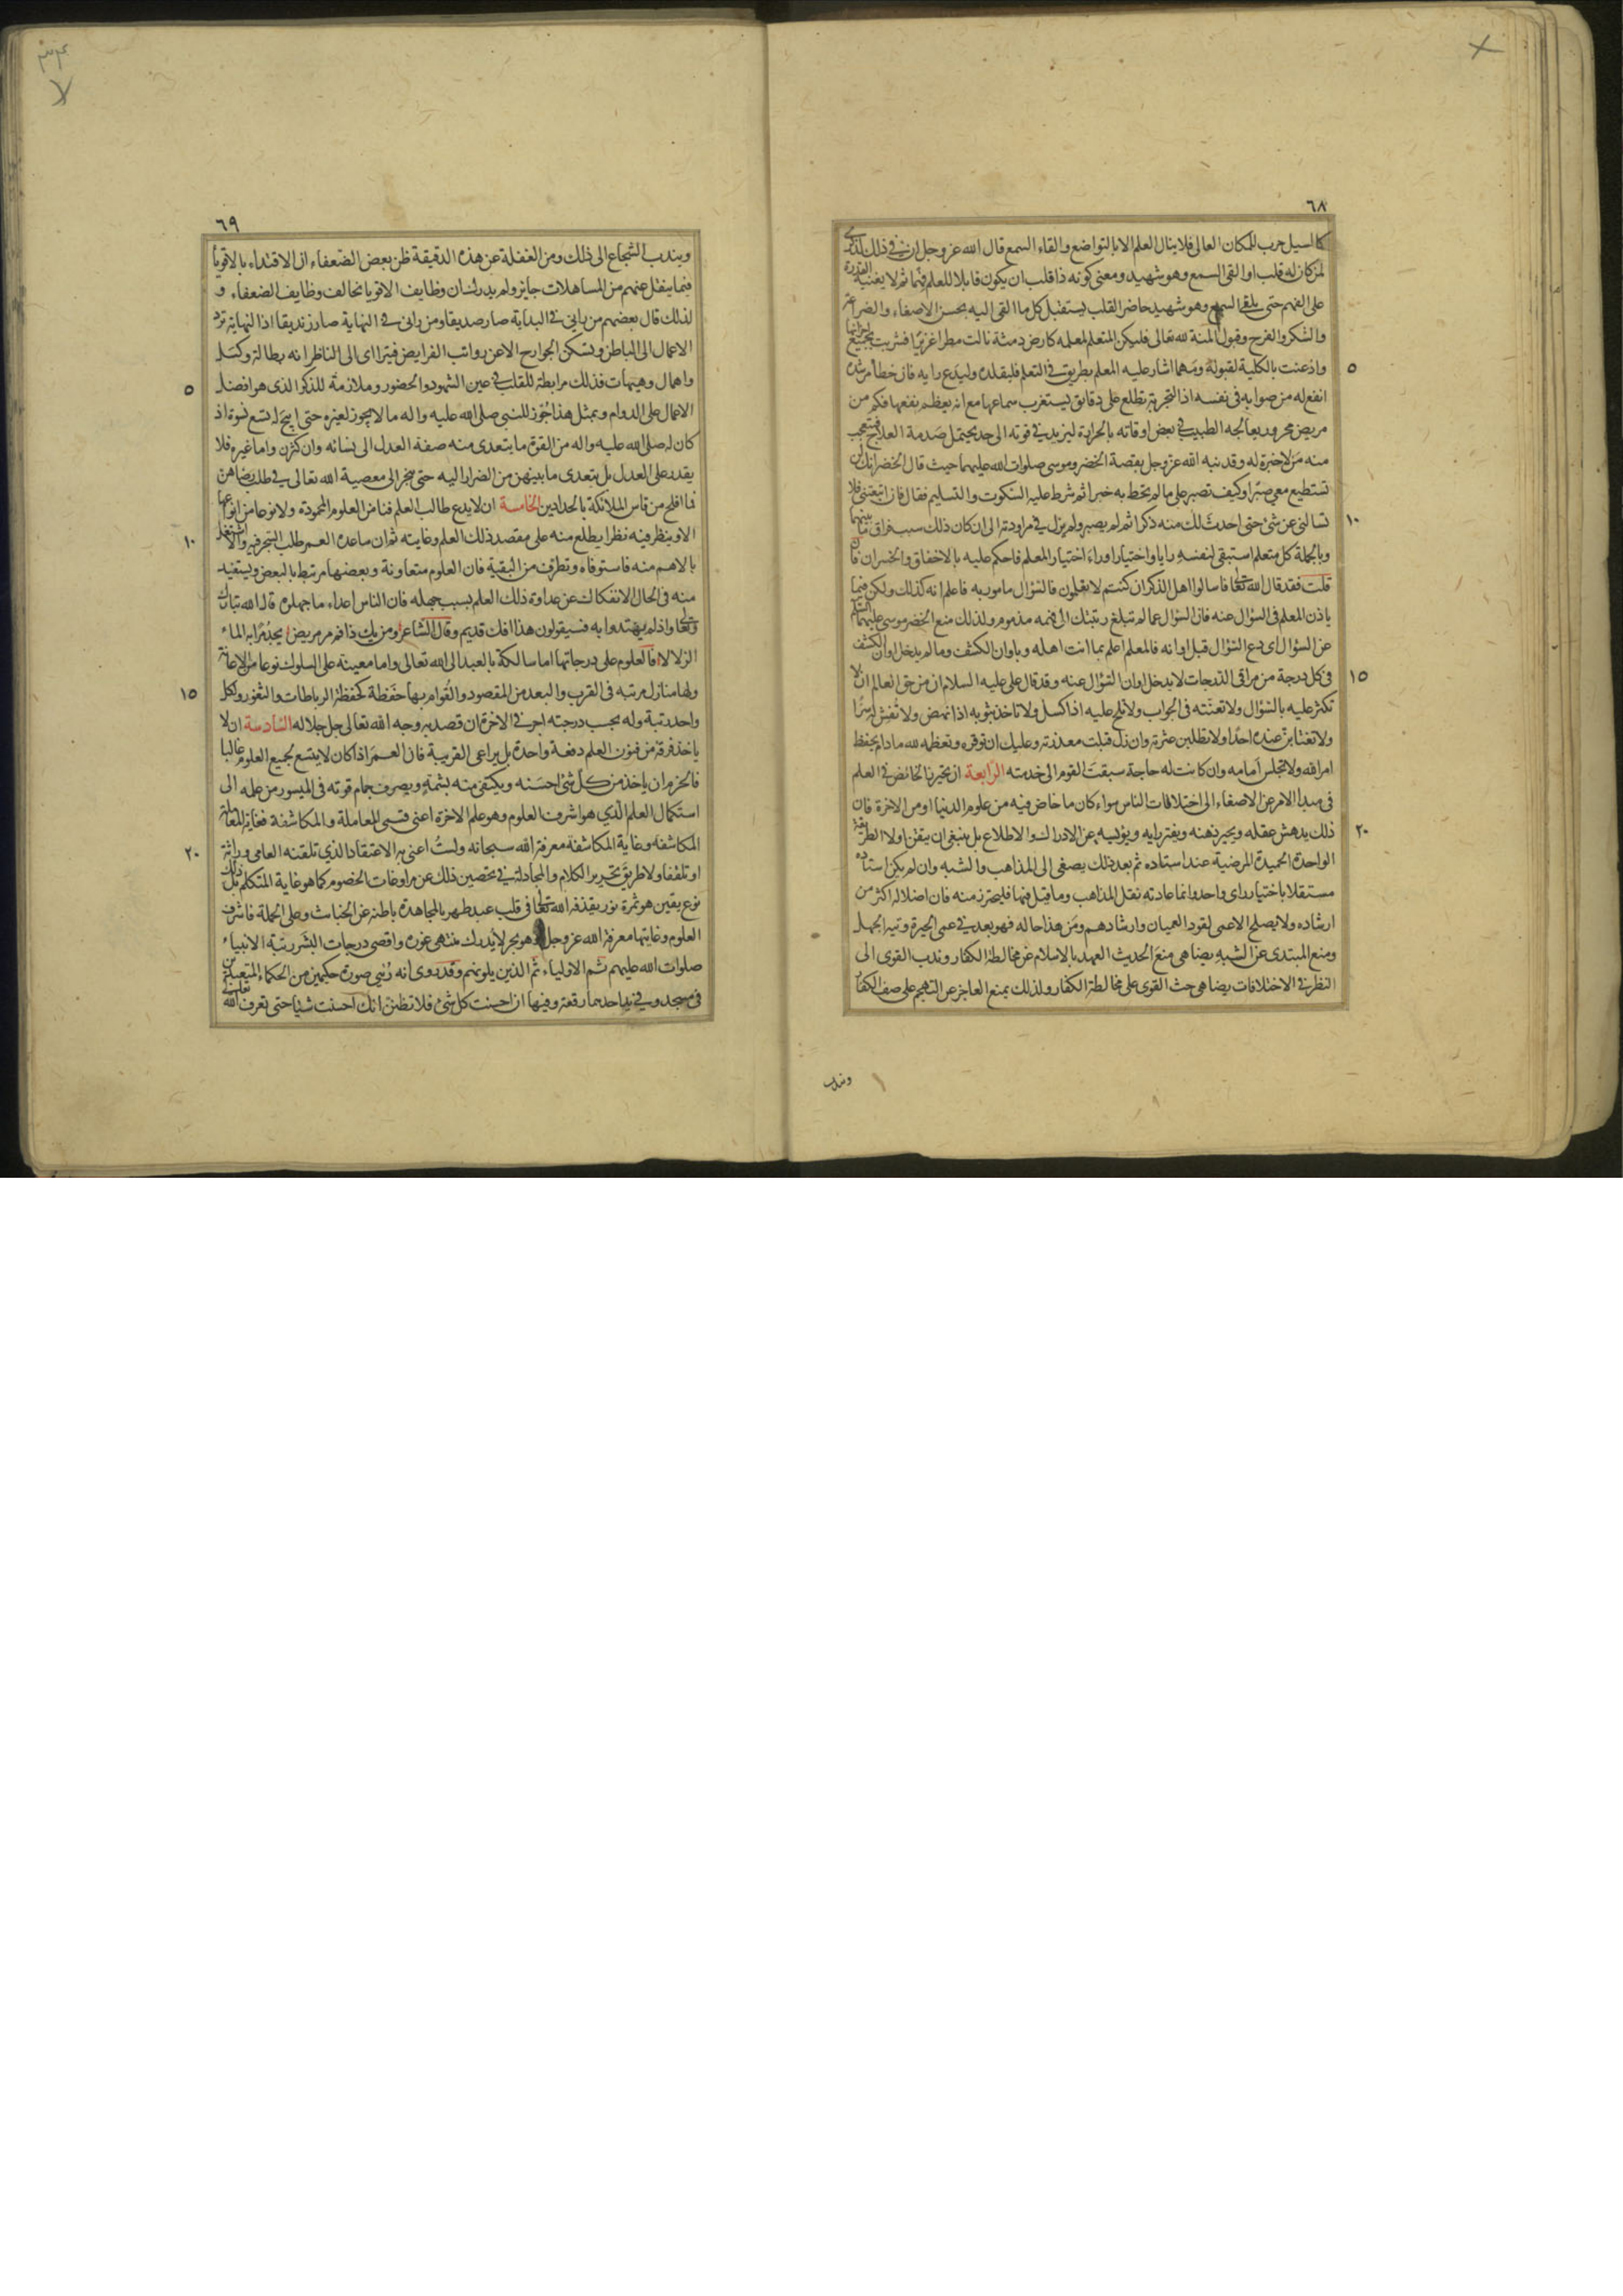 ٦٨
كالسيل حرب للمكان العالى فلا ينال العلم الا بالتواضع والقاء السمع قال الله عز وجل ان في ذلك لذكرى
لمن كان له قلب او القى السمع وهو شهيد ومعنى كونه ذا قلب ان يكون قابلا للعلم فهما ثم لا يغنيه القدرة
على الفهم حتى يلقى السمع وهو شهيد حاضر القلب ليستقبل كل ما القى اليه بحسن الاصغاء والضراعة
والشكر والفرح وقبول المنة لله تعالى فليكن المتعلم لمعلمه كارض دمثة نالت مطرا غزيرا فشربت بجميع اجزائها
٥
واذعنت بالكلية لقبوله ومهما اشار عليه المعلم بطريق في التعلم فليقلده وليدع رايه فان خطأ مرشده
انفع له من صوابه في نفسه اذ التجربة تطلع على دقائق يستغرب سماعها مع انه يعظم نفعها فكم من
مريض محرور يعالجه الطبيب في بعض اوقاته بالحرارة ليزيد في قوته الى حد يحتمل صدمة العلاج فيتعجب
منه من لا خبرة له وقد نبه الله عز وجل بقصة الخضر وموسى صلوات الله عليهما حيث قال الخضر انك لن
تستطيع معي صبرا وكيف تصبر على ما لم تحط به خبرا ثم شرط عليه السكوت والتسليم فقال فان اتبعتنى فلا
١٠
تسالنى عن شئ حتى احدث لك منه ذكرا ثم لم يصبر ولم يزل في مراودته الى ان كان ذلك سبب فراق ما بينهما
وبالجملة كل متعلم استبقى لنفسه رايا واختيارا وراء اختيار المعلم فاحكم عليه بالاخفاق والخسران فان
قلت فقد قال الله تعالى فاسالوا اهل الذكر ان كنتم لا تعلمون فالسؤال مامور به فاعلم انه كذلك ولكن فيما
ياذن المعلم فى السؤال عنه فان السؤال عما لم تبلغ رتبتك الى فهمه مذموم ولذلك منع الخضر موسى عليهما السلم
عن السؤال اى دع السؤال قبل اوانه فالمعلم اعلم بما انت اهله وباوان الكشف وما لم يدخل اوان الكشف
١٥
فى كل درجة من مراقى الدرجات لا يدخل اوان السؤال عنه وقد قال على عليه السلام ان من حق العالم ان لا
تكثر عليه بالسؤال ولا تعنته فى الجواب ولا تلح عليه اذا كسل ولا تاخذ بثوبه اذا نهض ولا تفش له سرا
ولا تغتابن عنده احدا ولا تطلبن عثرته وان زل قبلت معذرته وعليك ان توقره وتعظمه لله ما دام يحفظ
امر الله ولا تجلس امامه وان كانت له حاجة سبقت القوم الى خدمته الرابعة ان يحترز الخائض في العلم
فى مبدا الامر عن الاصغاء الى اختلافات الناس سواء كان ما خاض فيه من علوم الدنيا او من الاخرة فان
٢٠
ذلك يدهش عقله ويحير ذهنه ويفتر رايه ويؤيسه عن الادراك والاطلاع بل ينبغى ان يتقن اولا الطريقة
الواحدة الحميدة المرضية عند استاده ثم بعد ذلك يصغى الى المذاهب والشبه وان لم يكن استاده
مستقلا باختيار راى واحد وانما عادته نقل المذاهب وما قيل فيها فليحترز منه فان اضلاله اكثر من
ارشاده ولا يصلح الاعمى لقود العميان وارشادهم ومن هذا حاله فهو بعد في عمى الحيرة وتيه الجهل
ومنع المبتدى عن الشبه يضاهى منع الحديث العهد بالاسلام عن مخالطة الكفار وندب القوى الى
النظر في الاختلافات يضاهى حث القوى على مخالطة الكفار ولذلك يمنع العاجز عن التهجم على صف الكفار
ويندب
٦٩
ويندب الشجاع الى ذلك ومن الغفلة عن هذه الدقيقة ظن بعض الضعفاء ان الاقتداء بالاقوياء
فيما ينقل عنهم من المساهلات جايز ولم يدر ان شان وظايف الاقويا تخالف وظايف الضعفاء و
لذلك قال بعضهم من رانى في البداية صار صديقا ومن رانى في النهاية صار زنديقا اذ النهاية ترد
الاعمال الى الباطن وتسكن الجوارح الا عن رواتب الفرايض فيتراءى الى الناظر انه بطالة وكسل
٥
واهمال وهيهات فذلك مرابطة للقلب في عين الشهود والحضور وملازمة للذكر الذى هو افضل
الاعمال على الدوام وبمثل هذا جوز للنبى صلى الله عليه واله ما لا يجوز لغيره حتى ابيح له تسع نسوة اذ
كان له صلى الله عليه واله من القوة ما يتعدى منه صفة العدل الى نسائه وان كثرن واما غيره فلا
يقدر على العدل بل يتعدى ما بينهن من الضرار اليه حتى ينجر الى معصية الله تعالى في طلب رضاهن
فما افلح من قاس الملائكة بالحدادين الخامسة ان لا يدع طالب العلم فنا من العلوم المحمودة ولا نوعا من انواعها
١٠
الا وينظر فيه نظرا يطلع منه على مقصد ذلك العلم وغايته ثم ان ساعده العمر طلب التبحر فيه والا اشتغل
بالاهم منه فاستوفاه وتطرف من البقية فان العلوم متعاونة وبعضها مرتبط بالبعض ويستفيد
منه فى الحال الانفكاك عن عداوة ذلك العلم بسبب جهله فان الناس اعداء ما جهلوه قال الله تبارك
وتعالى واذ لم يهتدوا به فسيقولون هذا افك قديم وقال الشاعر ومن يك ذا فم مر مريض يجد مرا به الماء
الزلالا فالعلوم على درجاتها اما سالكة بالعبد الى الله تعالى واما معينة على السلوك نوعا من الاعانة
١٥
ولها منازل مرتبة فى القرب والبعد من المقصود والقوام بها حفظة كحفظة الرباطات والثغور ولكل
واحد رتبة وله بحسب درجته اجر في الاخرة ان قصد به وجه الله تعالى جل جلاله السادسة ان لا
ياخذ فرقة من فنون العلم دفعة واحدة بل يراعى القريبة فان العمر اذا كان لا يتسع لجميع العلوم غالبا
فالحزم ان ياخذ من كل شئ احسنه ويكتفى منه بشمة ويصرف جمام قوته فى الميسور من علمه الى
استكمال العلم الذي هو اشرف العلوم وهو علم الاخرة اعنى قسمى المعاملة والمكاشفة فغاية المعاملة
٢٠
المكاشفه وغاية المكاشفة معرفة الله سبحانه ولست اعنى به الاعتقاد الذي تلقنه العامى وراثة
او تلقفا ولا طريق تحرير الكلام والمجادلة في تحصين ذلك عن مراوغات الخصوم كما هو غاية المتكلم بل ذلك
نوع يقين هو ثمرة نور يقذفه الله تعالى فى قلب عبد طهر بالمجاهدة باطنه عن الخباث وعلى الجملة فاشرف
العلوم وغايتها معرفة الله عز وجل وهو بحر لا يدرك منتهى غوره واقصى درجات البشر رتبة الانبياء
صلوات الله عليهم ثم الاولياء ثم الذين يلونهم وقد روى انه رئي صورة حكيمين من الحكماء المتعبدين
فى مسجد وفي يد احدهما رقعة وفيها ان احسنت كل شئ فلا تظنن انك احسنت شيئا حتى تعرف الله تعالى